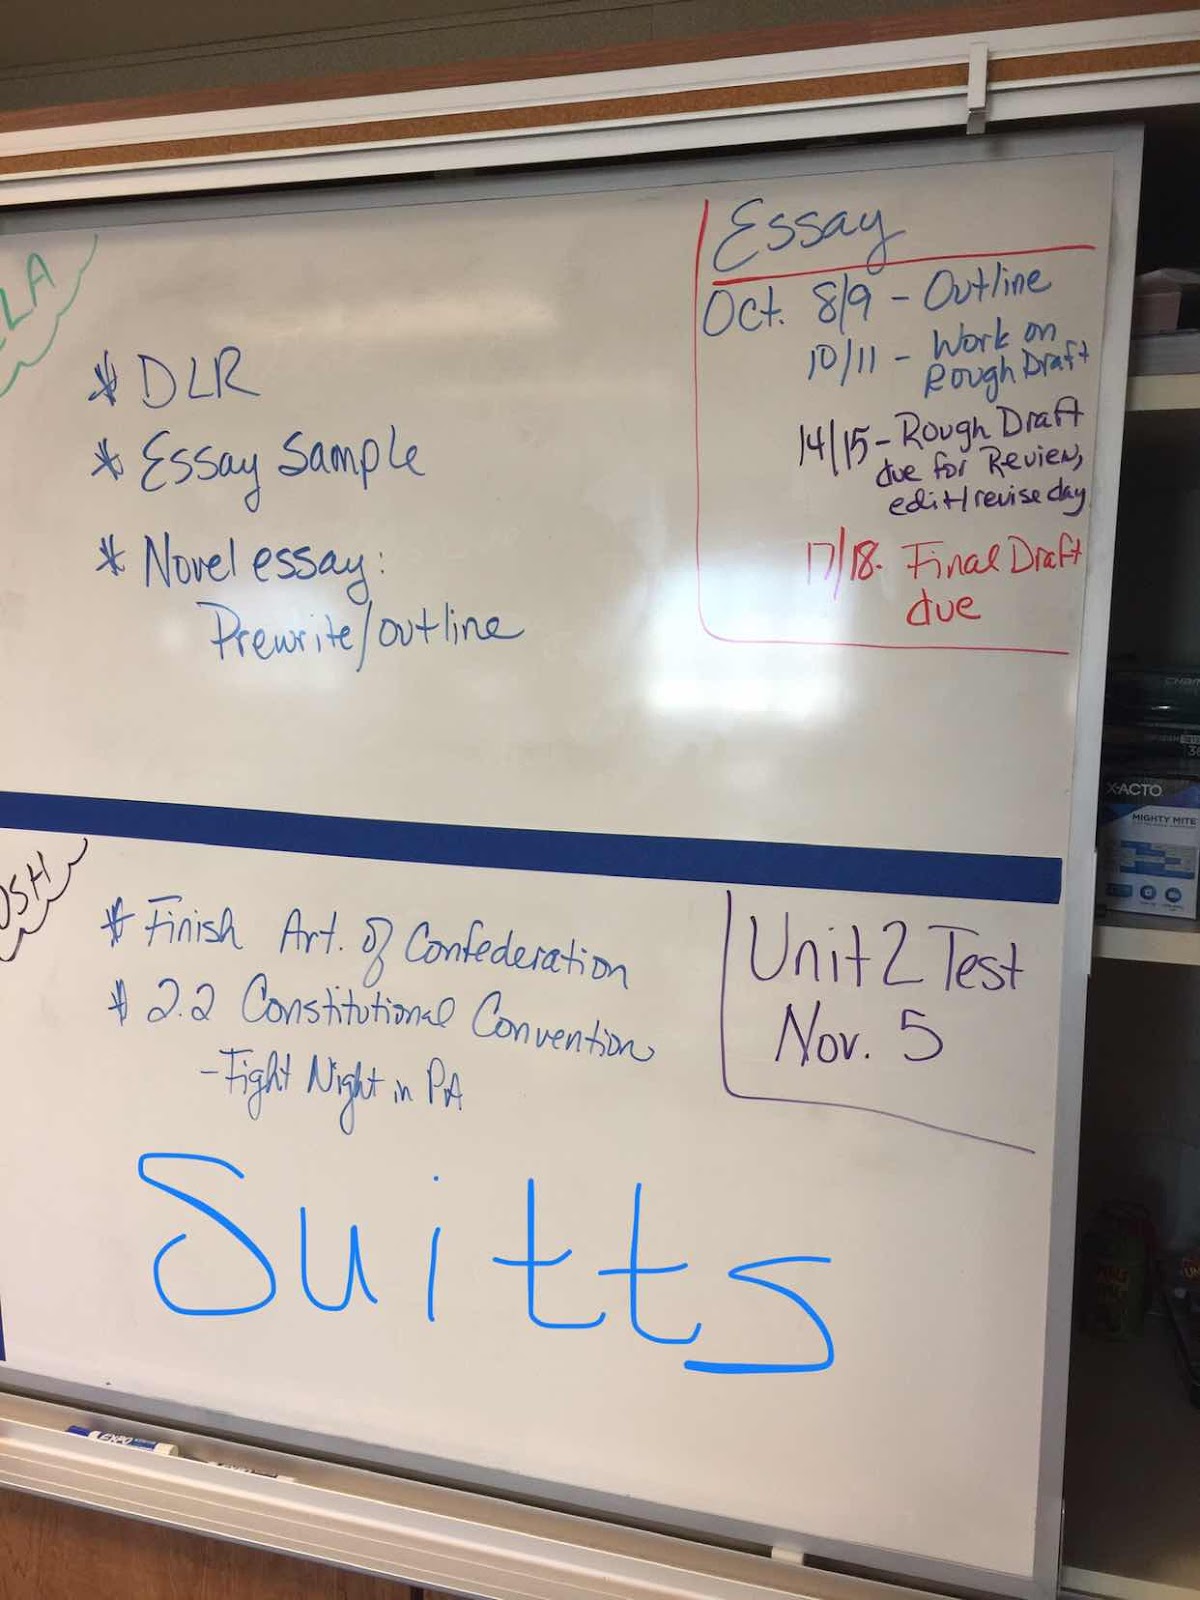 LA
* DLR
* Essay Sample
* Novel essay:
Prewrite/outline
Essay
Oct. 8/9 - Outline
10/11 - Work on
Rough Draft
14/15 - Rough Draft
due for Review,
edit/revise day
17/18. Final Draft
due
OSH
* Finish Art. of Confederation
* 2.2 Constitutional Convention
- Fight Night in PA
Unit 2 Test
Nov. 5
Suitts
X-ACTO
MIGHTY MITE
EXPO